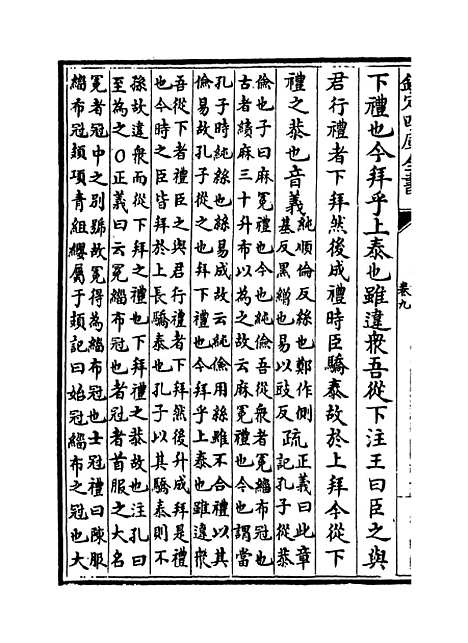 欽定四庫全書
卷九
下禮也今拜乎上泰也雖違衆吾從下注王曰臣之與
君行禮者下拜然後成禮時臣驕泰故於上拜今從下
禮之恭也音義純順倫反絲也鄭作側基反黑繒也易以豉反疏正義曰此章記孔子從恭
儉也子曰麻冕禮也今也純儉吾從衆者冕緇布冠也
古者績麻三十升布以為之故云麻冕禮也今也謂當
孔子時純絲也絲易成故云純儉用絲雖不合禮以其
儉易故孔子從之也拜下禮也今拜乎上泰也雖違衆
吾從下者禮臣之與君行禮者下拜然後升成拜是禮
也今時之臣皆拜於上長驕泰也孔子以其驕泰則不
孫故違衆而從下拜之禮也下拜禮之恭故也注孔曰
至為之○正義曰云冕緇布冠也者冠者首服之大名
冕者冠中之別號故冕得為緇布冠也士冠禮曰陳服
緇布冠頍項青組纓屬于頍記曰始冠緇布之冠也大